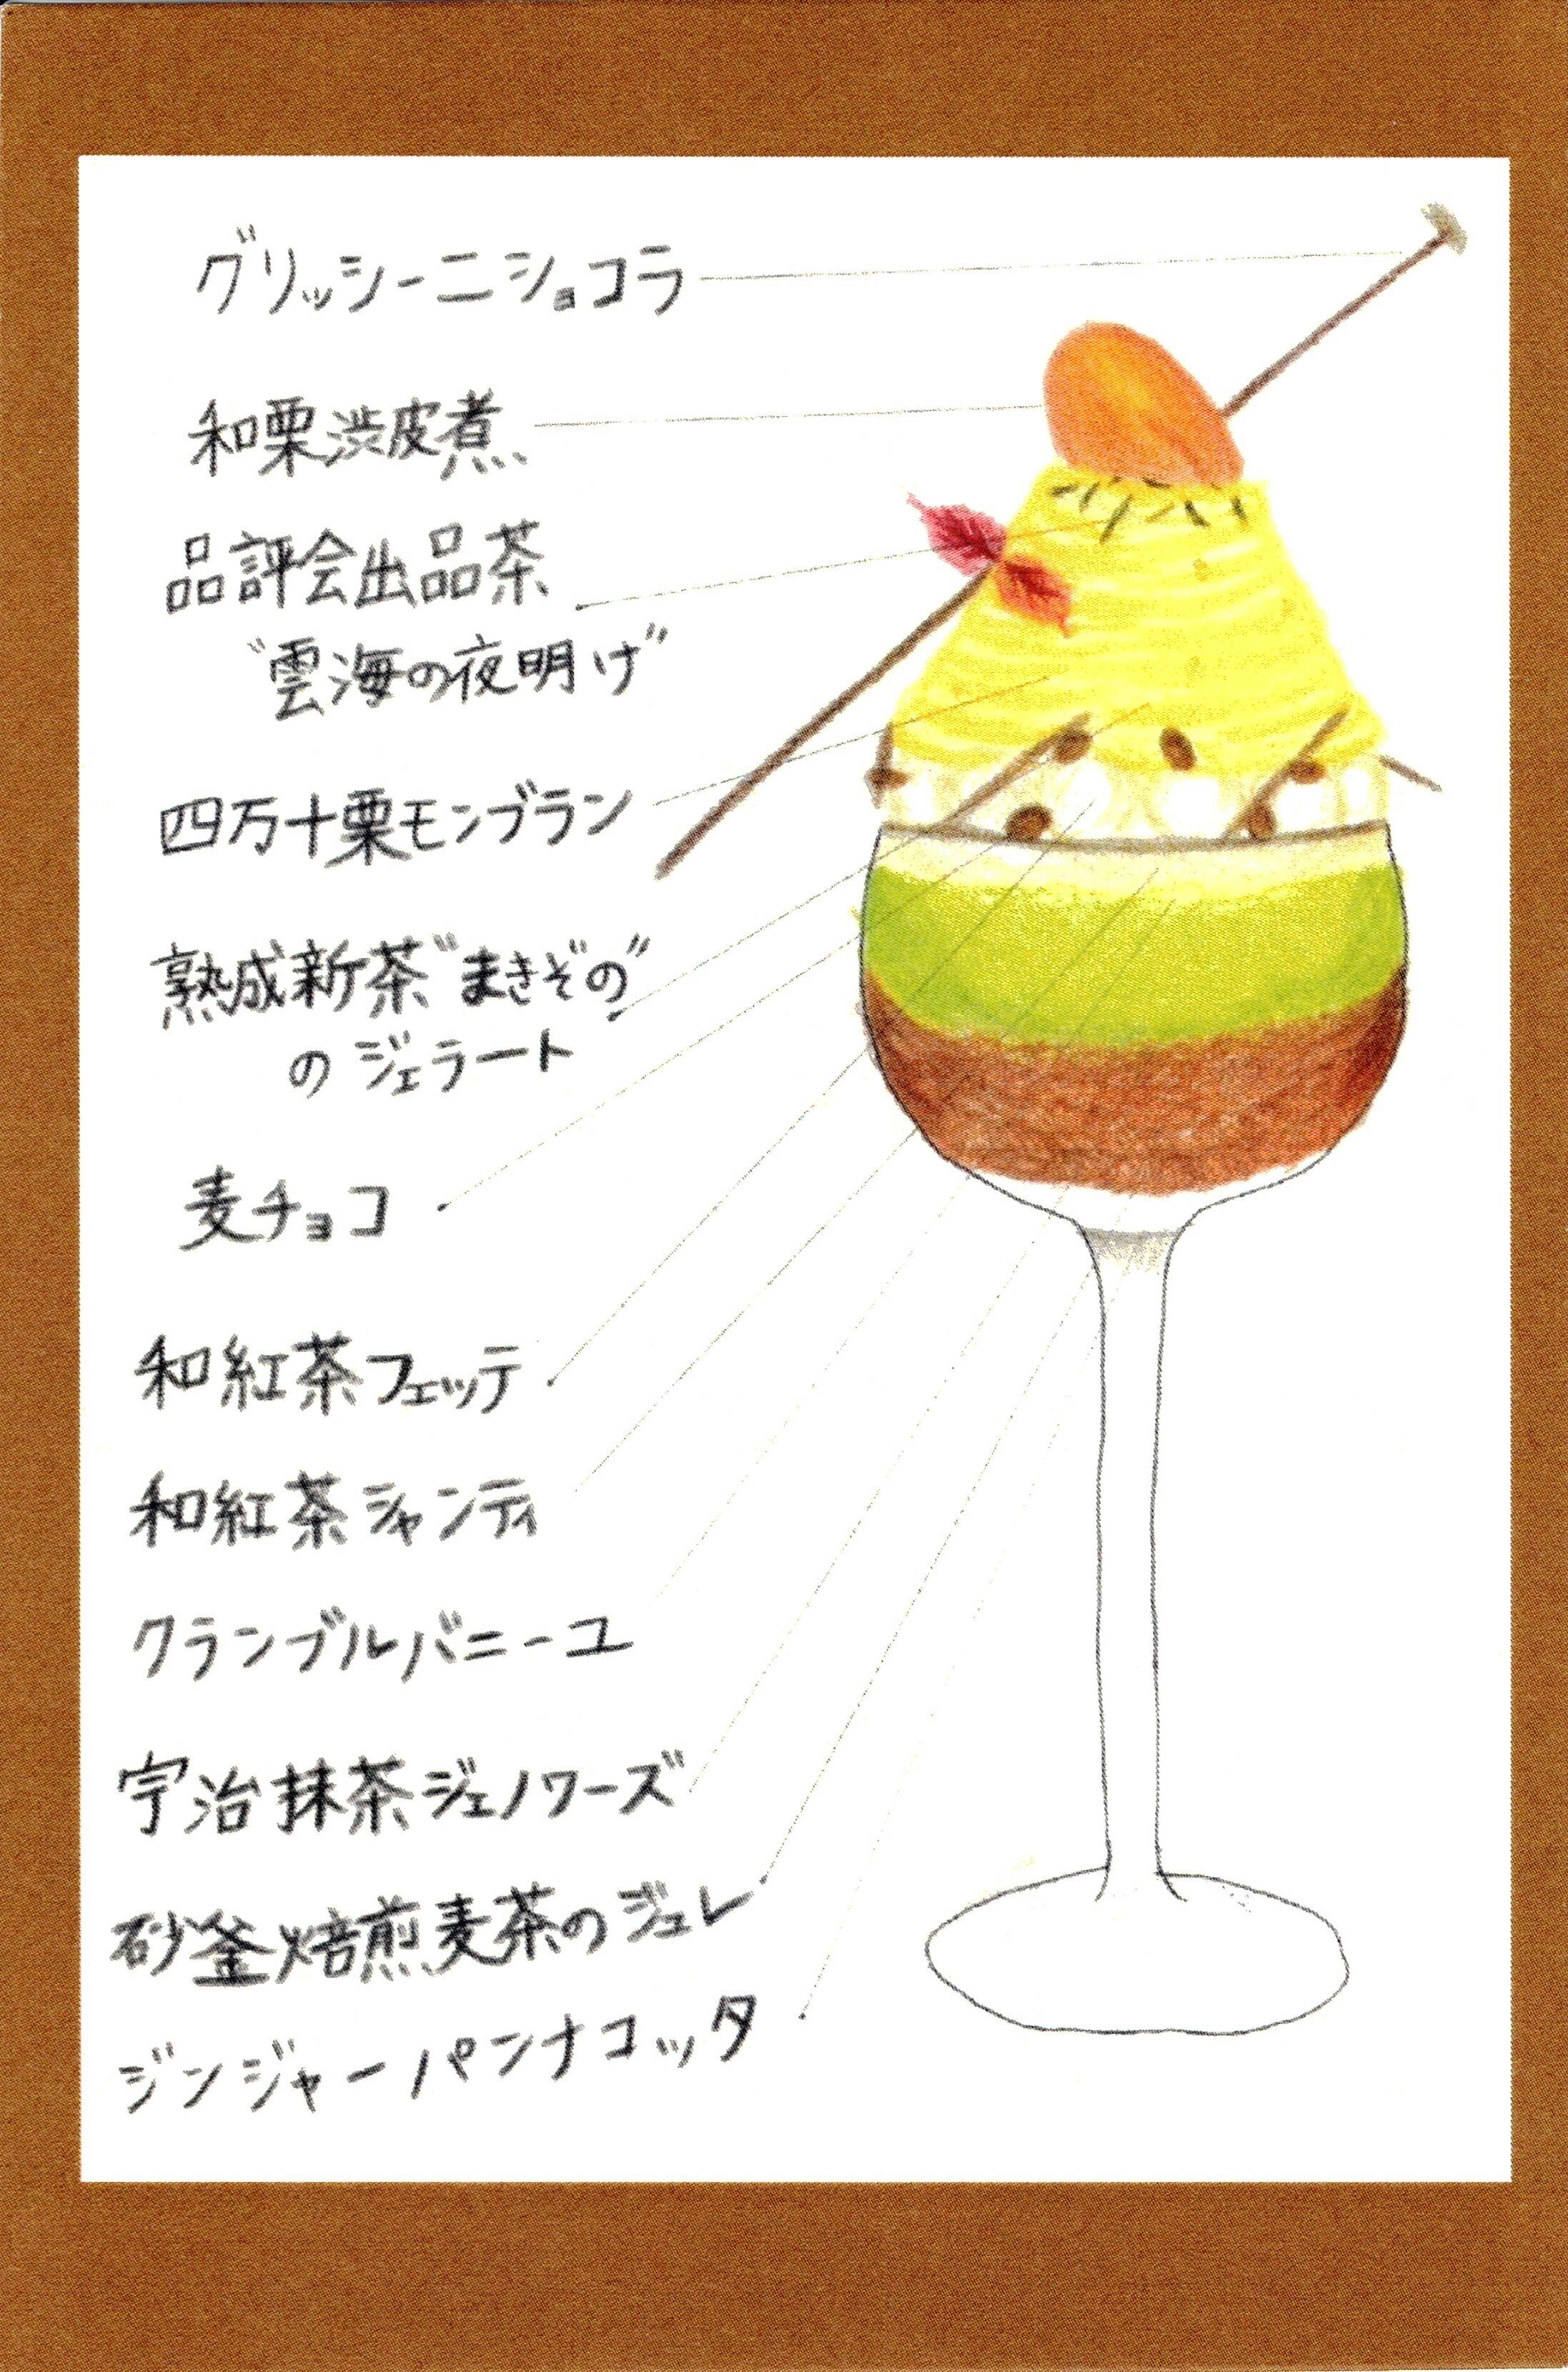 グリッシーニショコラ
和栗渋皮煮
品評会出品茶
"雲海の夜明け"
四万十栗モンブラン
熟成新茶"まきぞの"
のジェラート
麦チョコ
和紅茶フェッテ
和紅茶シャンティ
クランブルバニーユ
宇治抹茶ジェノワーズ
砂釜焙煎麦茶のジュレ
ジンジャーパンナコッタ